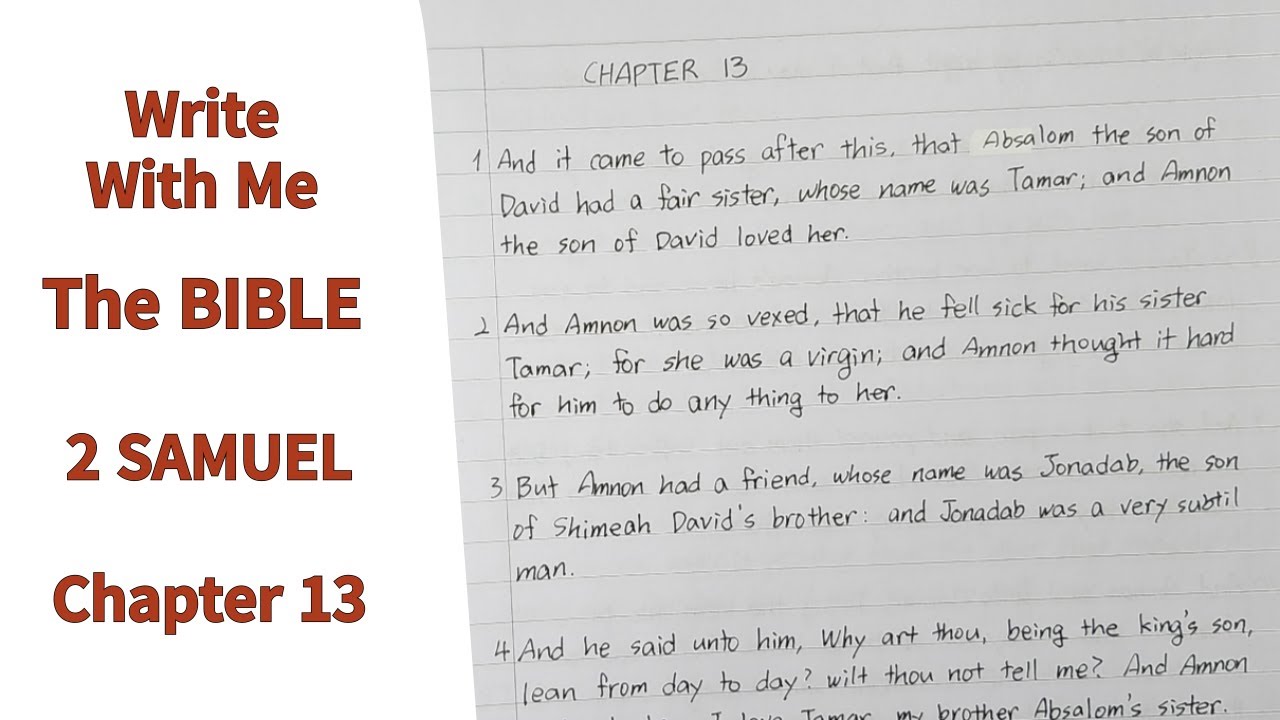 Write
With Me
The BIBLE
2 SAMUEL
Chapter 13
CHAPTER 13
1 And it came to pass after this, that Absalom the son of
David had a fair sister, whose name was Tamar; and Amnon
the son of David loved her.
2 And Amnon was so vexed, that he fell sick for his sister
Tamar; for she was a virgin; and Amnon thought it hard
for him to do any thing to her.
3 But Amnon had a friend, whose name was Jonadab, the son
of Shimeah David's brother: and Jonadab was a very subtil
man.
4 And he said unto him, Why art thou, being the king's son,
lean from day to day? wilt thou not tell me? And Amnon
I love Tamar, my brother Absalom's sister.